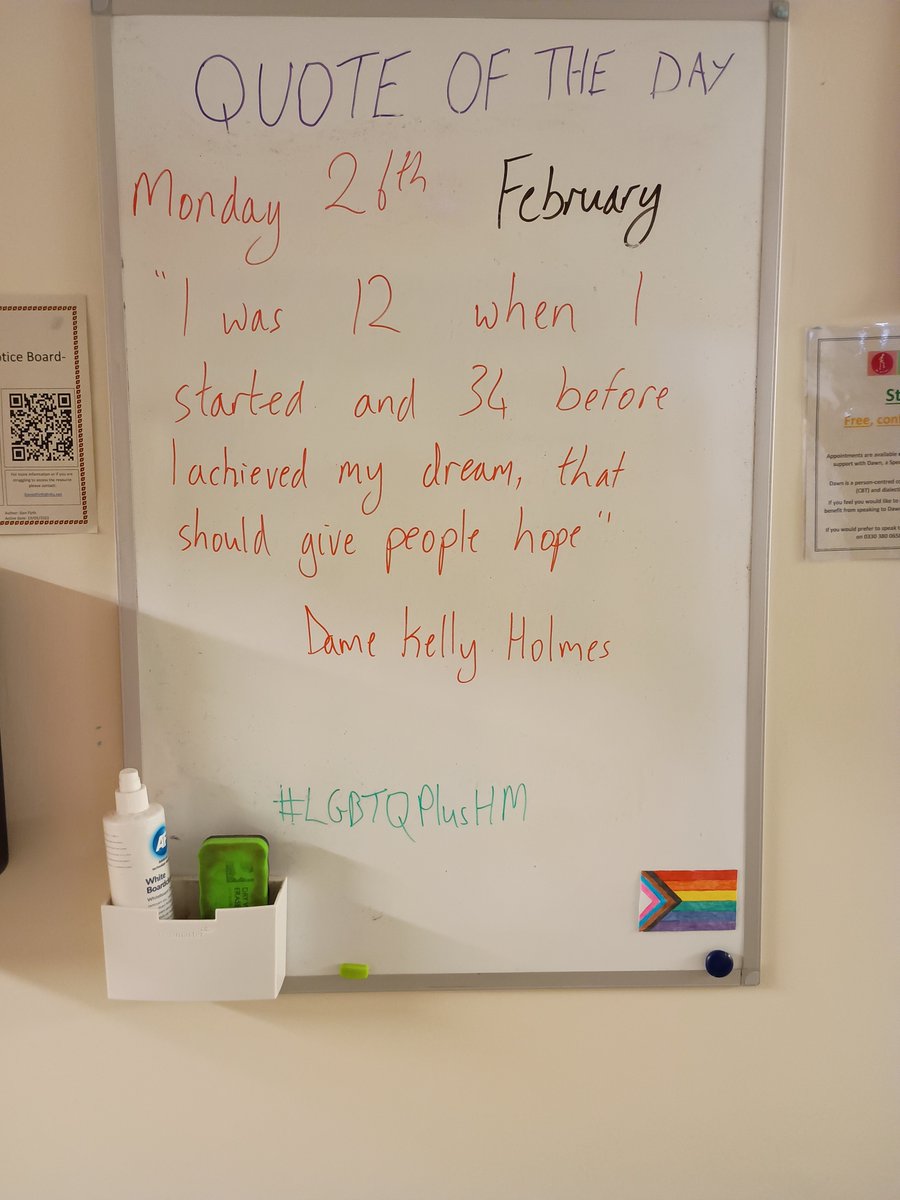 QUOTE OF THE DAY
Monday 26th February
"I was 12 when I
started and 34 before
I achieved my dream, that
should give people hope"
Dame Kelly Holmes
#LGBTQPlusHM
otice Board-
For more information or if you are
struggling to access the resource
please contact:
Author: Dan Firth
St
Free, con
Appointments are available
support with Dawn, a Spe
Dawn is a person-centred co
(CBT) and dialectic
If you feel you would like to
benefit from speaking to Daw
If you would prefer to speak t
on 0330 380 065
White